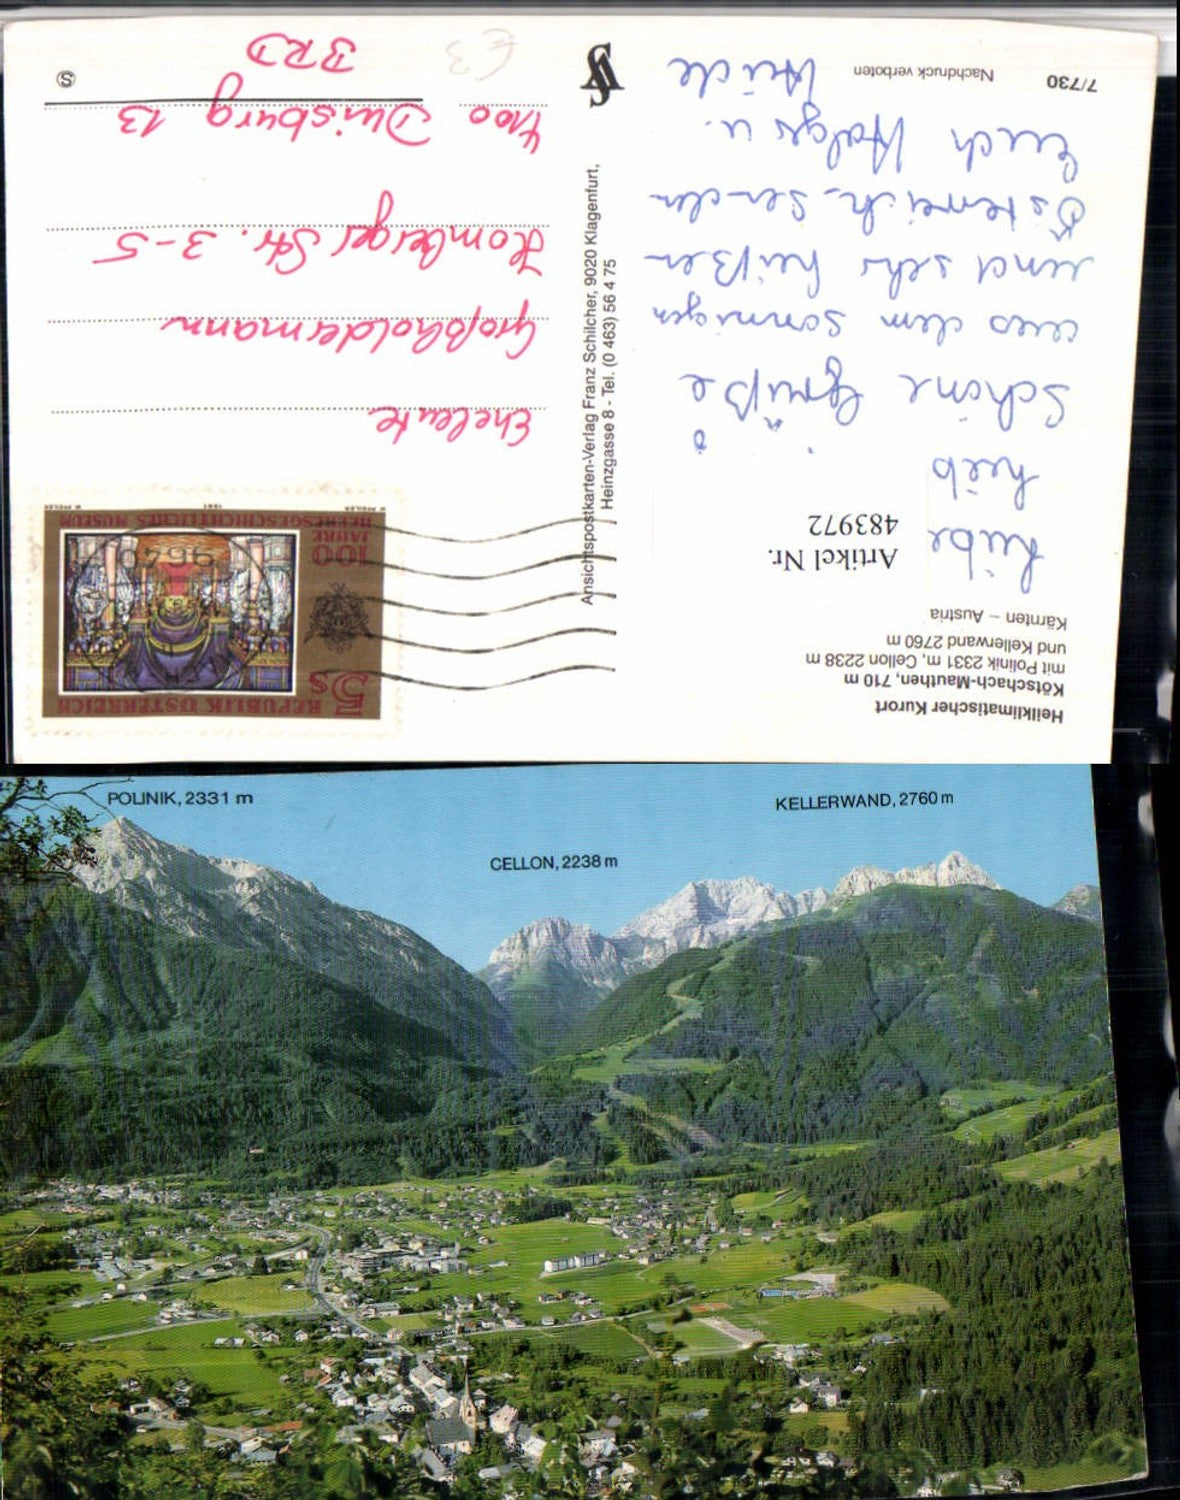 Heilklimatischer Kurort
Kötschach-Mauthen, 710 m
mit Polinik 2331 m, Cellon 2238 m
und Kellerwand 2760 m
Kärnten – Austria
Artikel Nr.
483972
Schöne Grüße
aus dem sonnigen
und sehr heißen
Österreich, senden
Euch Holger u.
Heide
7/730
Nachdruck verboten
Ansichtspostkarten-Verlag Franz Schilcher, 9020 Klagenfurt,
Heinzgasse 8 - Tel. (0 463) 56 4 75
REPUBLIK ÖSTERREICH
5s
100
JAHRE
HEERESGESCHICHTLICHES MUSEUM
W. PFEILER
1991
W. PFEILER
9640
Eheleute
Großholdermann
Homberger Str. 3-5
4100 Duisburg 13
BRD
€3
S
POLINIK, 2331 m
CELLON, 2238 m
KELLERWAND, 2760 m